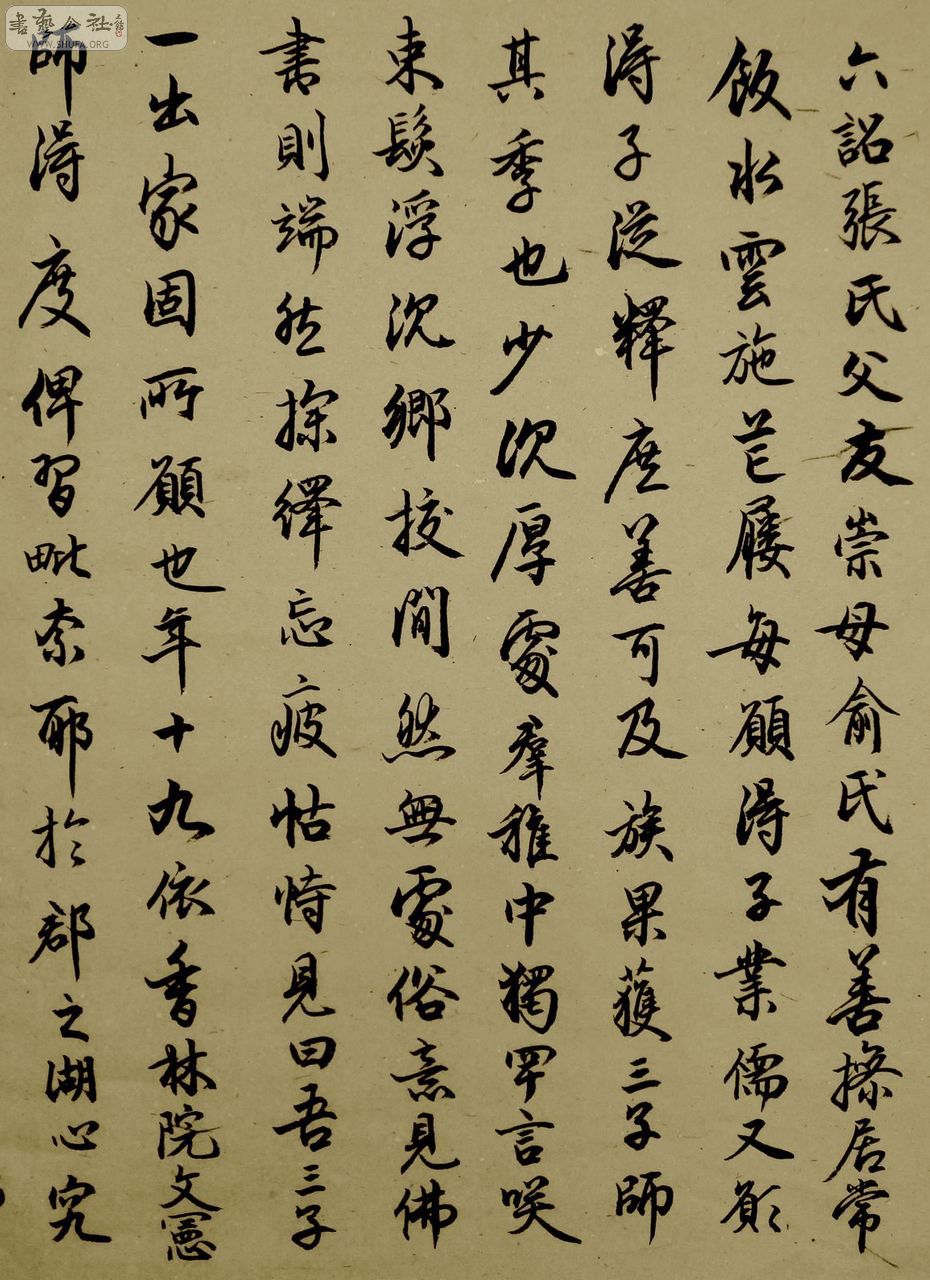 書藝公社
WWW.SHUFA.ORG
六詔張氏父友崇母俞氏有善操居常
飯水雲施芒屨每願得子業儒又願
得子從釋庶善可及族果獲三子師
其季也少沉厚處羣稚中獨罕言咲
束髮浮沉鄉校間然無處俗意見佛
書則端然探繹忘疲怙恃見曰吾三子
一出家固所願也年十九依香林院文憲
師得度俾習毗柰耶於郡之湖心究